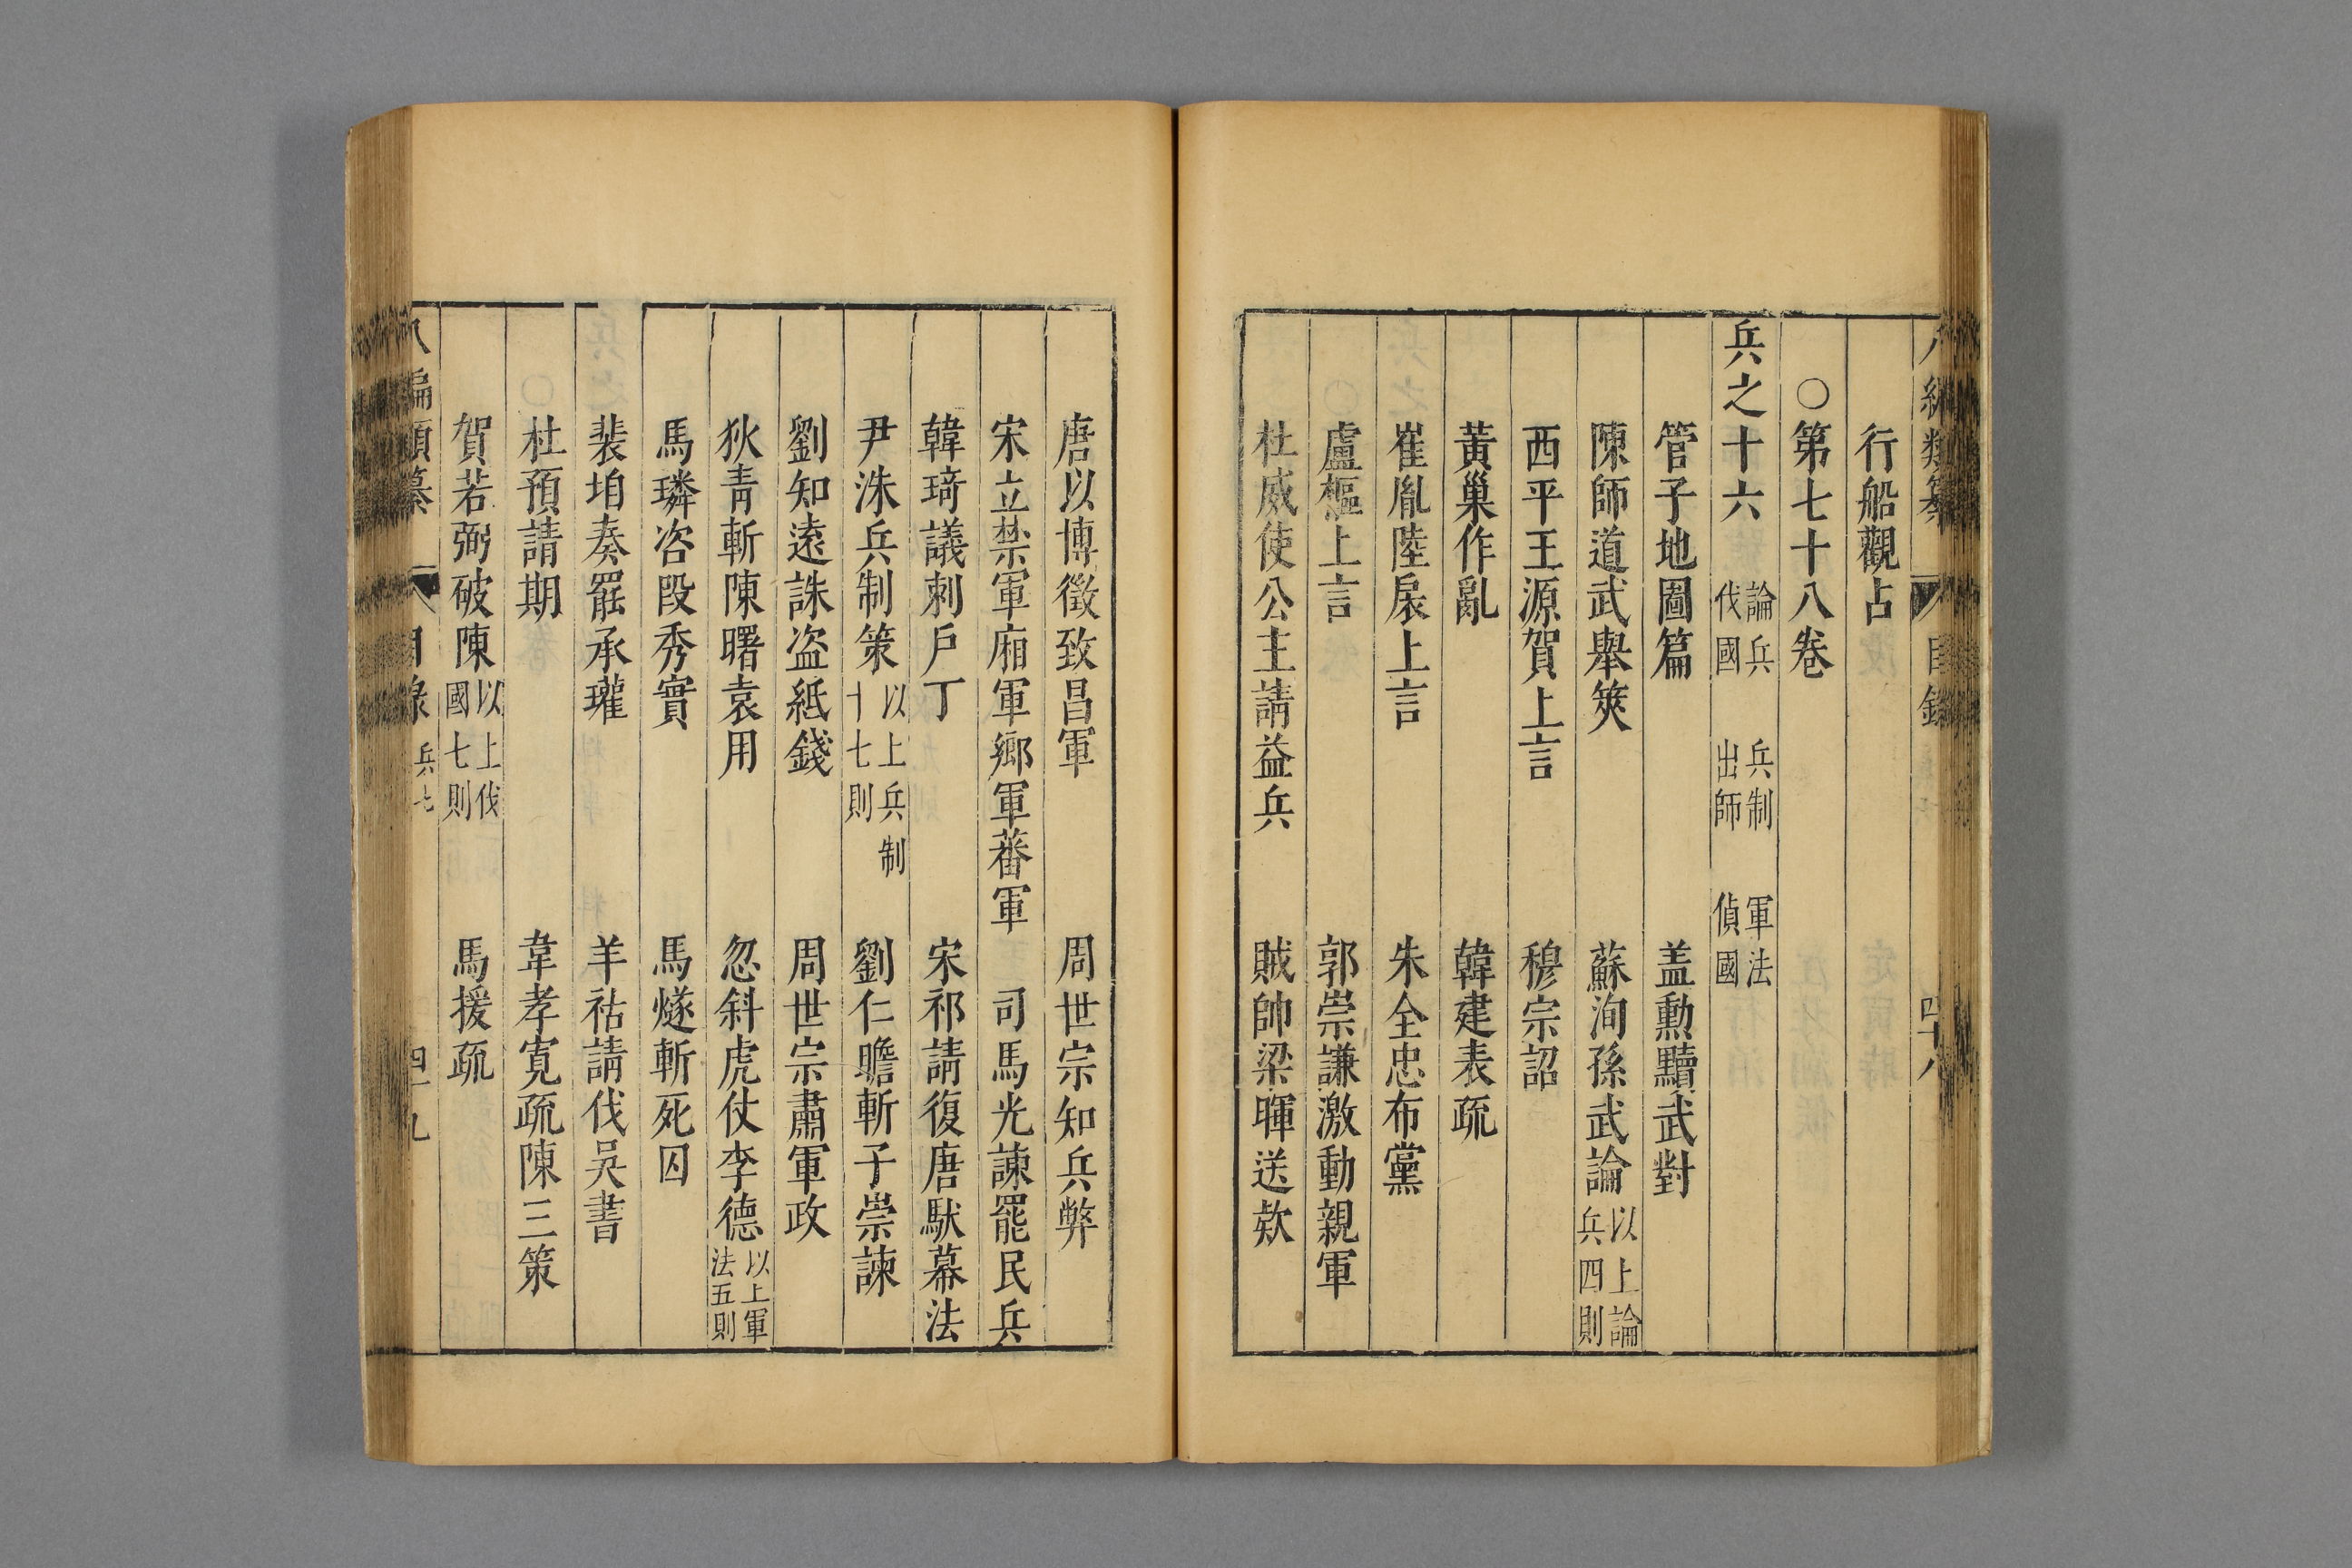 行船觀占
○第七十八卷
兵之十六 論兵 伐國 兵制 出師 軍法 偵國
管子地圖篇 盖勲黷武對
陳師道武舉筴 蘇洵孫武論 以上論兵四則
西平王源賀上言 穆宗詔
黃巢作亂 韓建表疏
崔胤陸扆上言 朱全忠布黨
盧樞上言 郭崇謙激動親軍
杜威使公主請益兵 賊帥梁暉送欵
唐以博徵致昌軍 周世宗知兵弊
宋立禁軍廂軍鄉軍蕃軍 司馬光諫罷民兵
韓琦議刺戶丁 宋祁請復唐馱幕法
尹洙兵制策 以上兵制十七則 劉仁瞻斬子崇諫
劉知遠誅盗紙錢 周世宗肅軍政
狄青斬陳曙袁用 忽斜虎仗李德 以上軍法五則
馬璘咨段秀實 馬燧斬死囚
裴垍奏罷承瓘 羊祜請伐吳書
杜預請期 韋孝寬疏陳三策
賀若弼破陳 以上伐國七則 馬援疏
編類纂 目錄 兵七 四十九